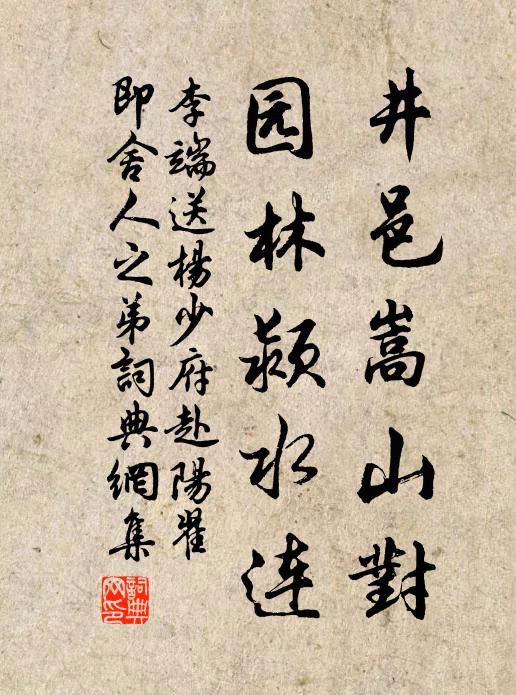 井邑嵩山對
园林潁水連
李端送楊少府赴陽翟
即舍人之弟詞典網集
詞典网印